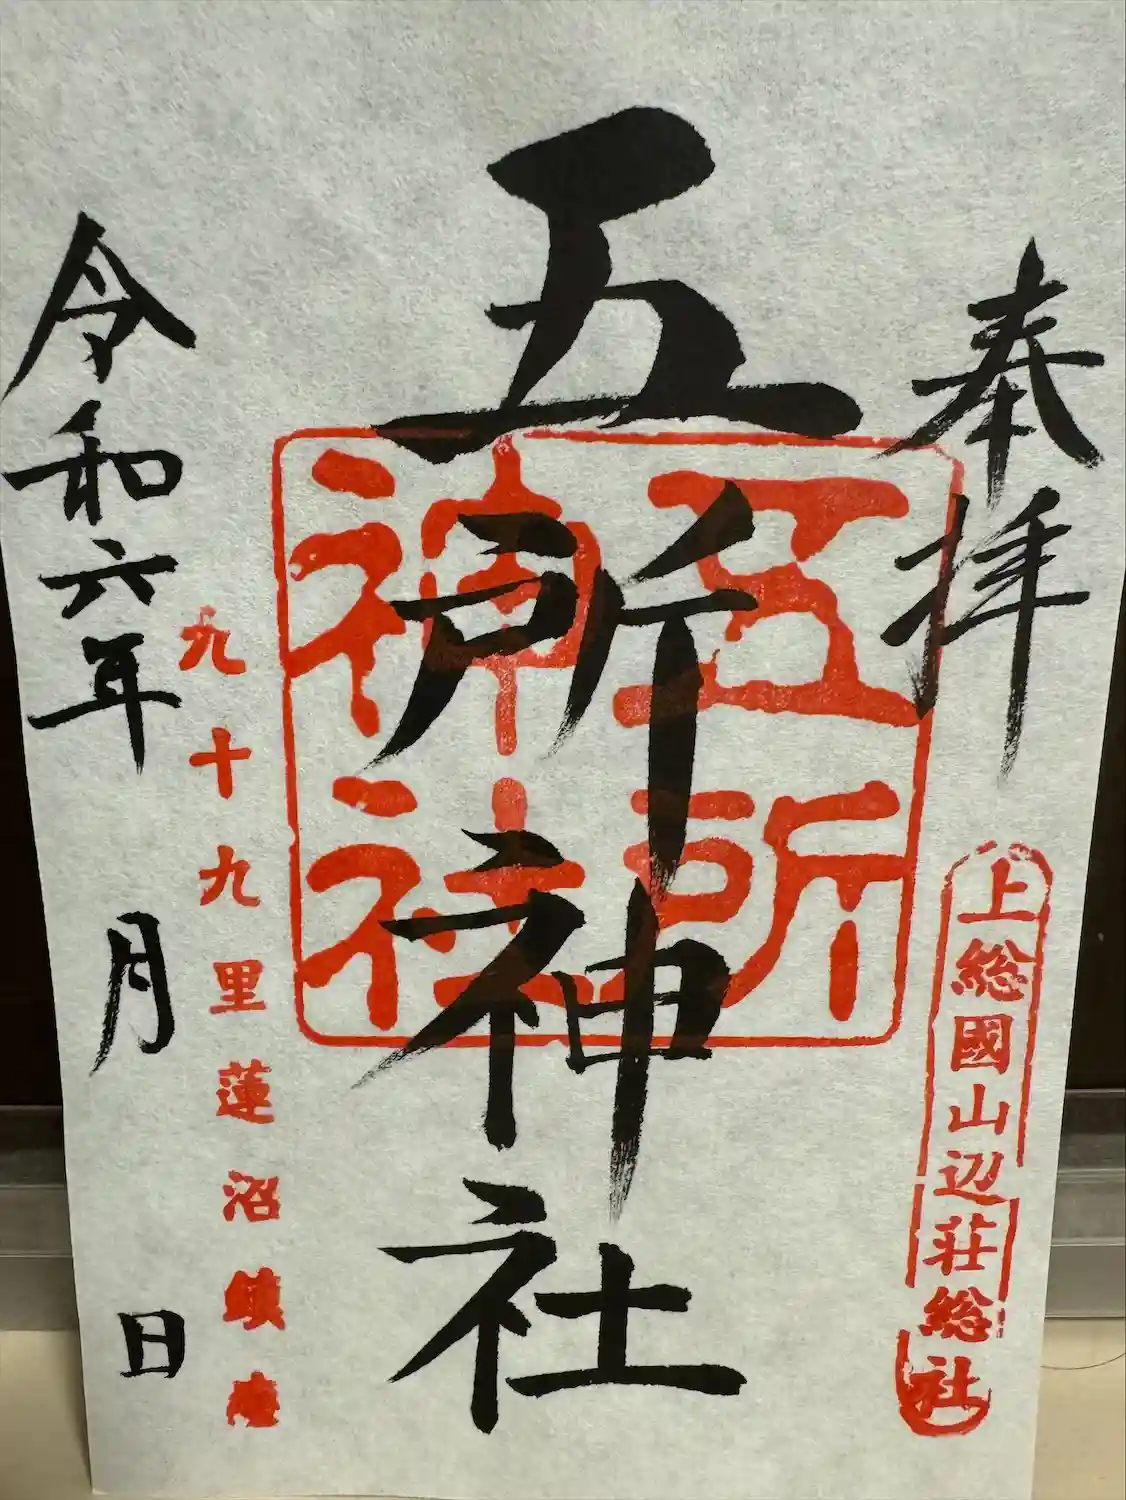 奉拝
上総國山辺荘総社
五所神社
五所神社
九十九里蓮沼鎮座
令和六年 月 日